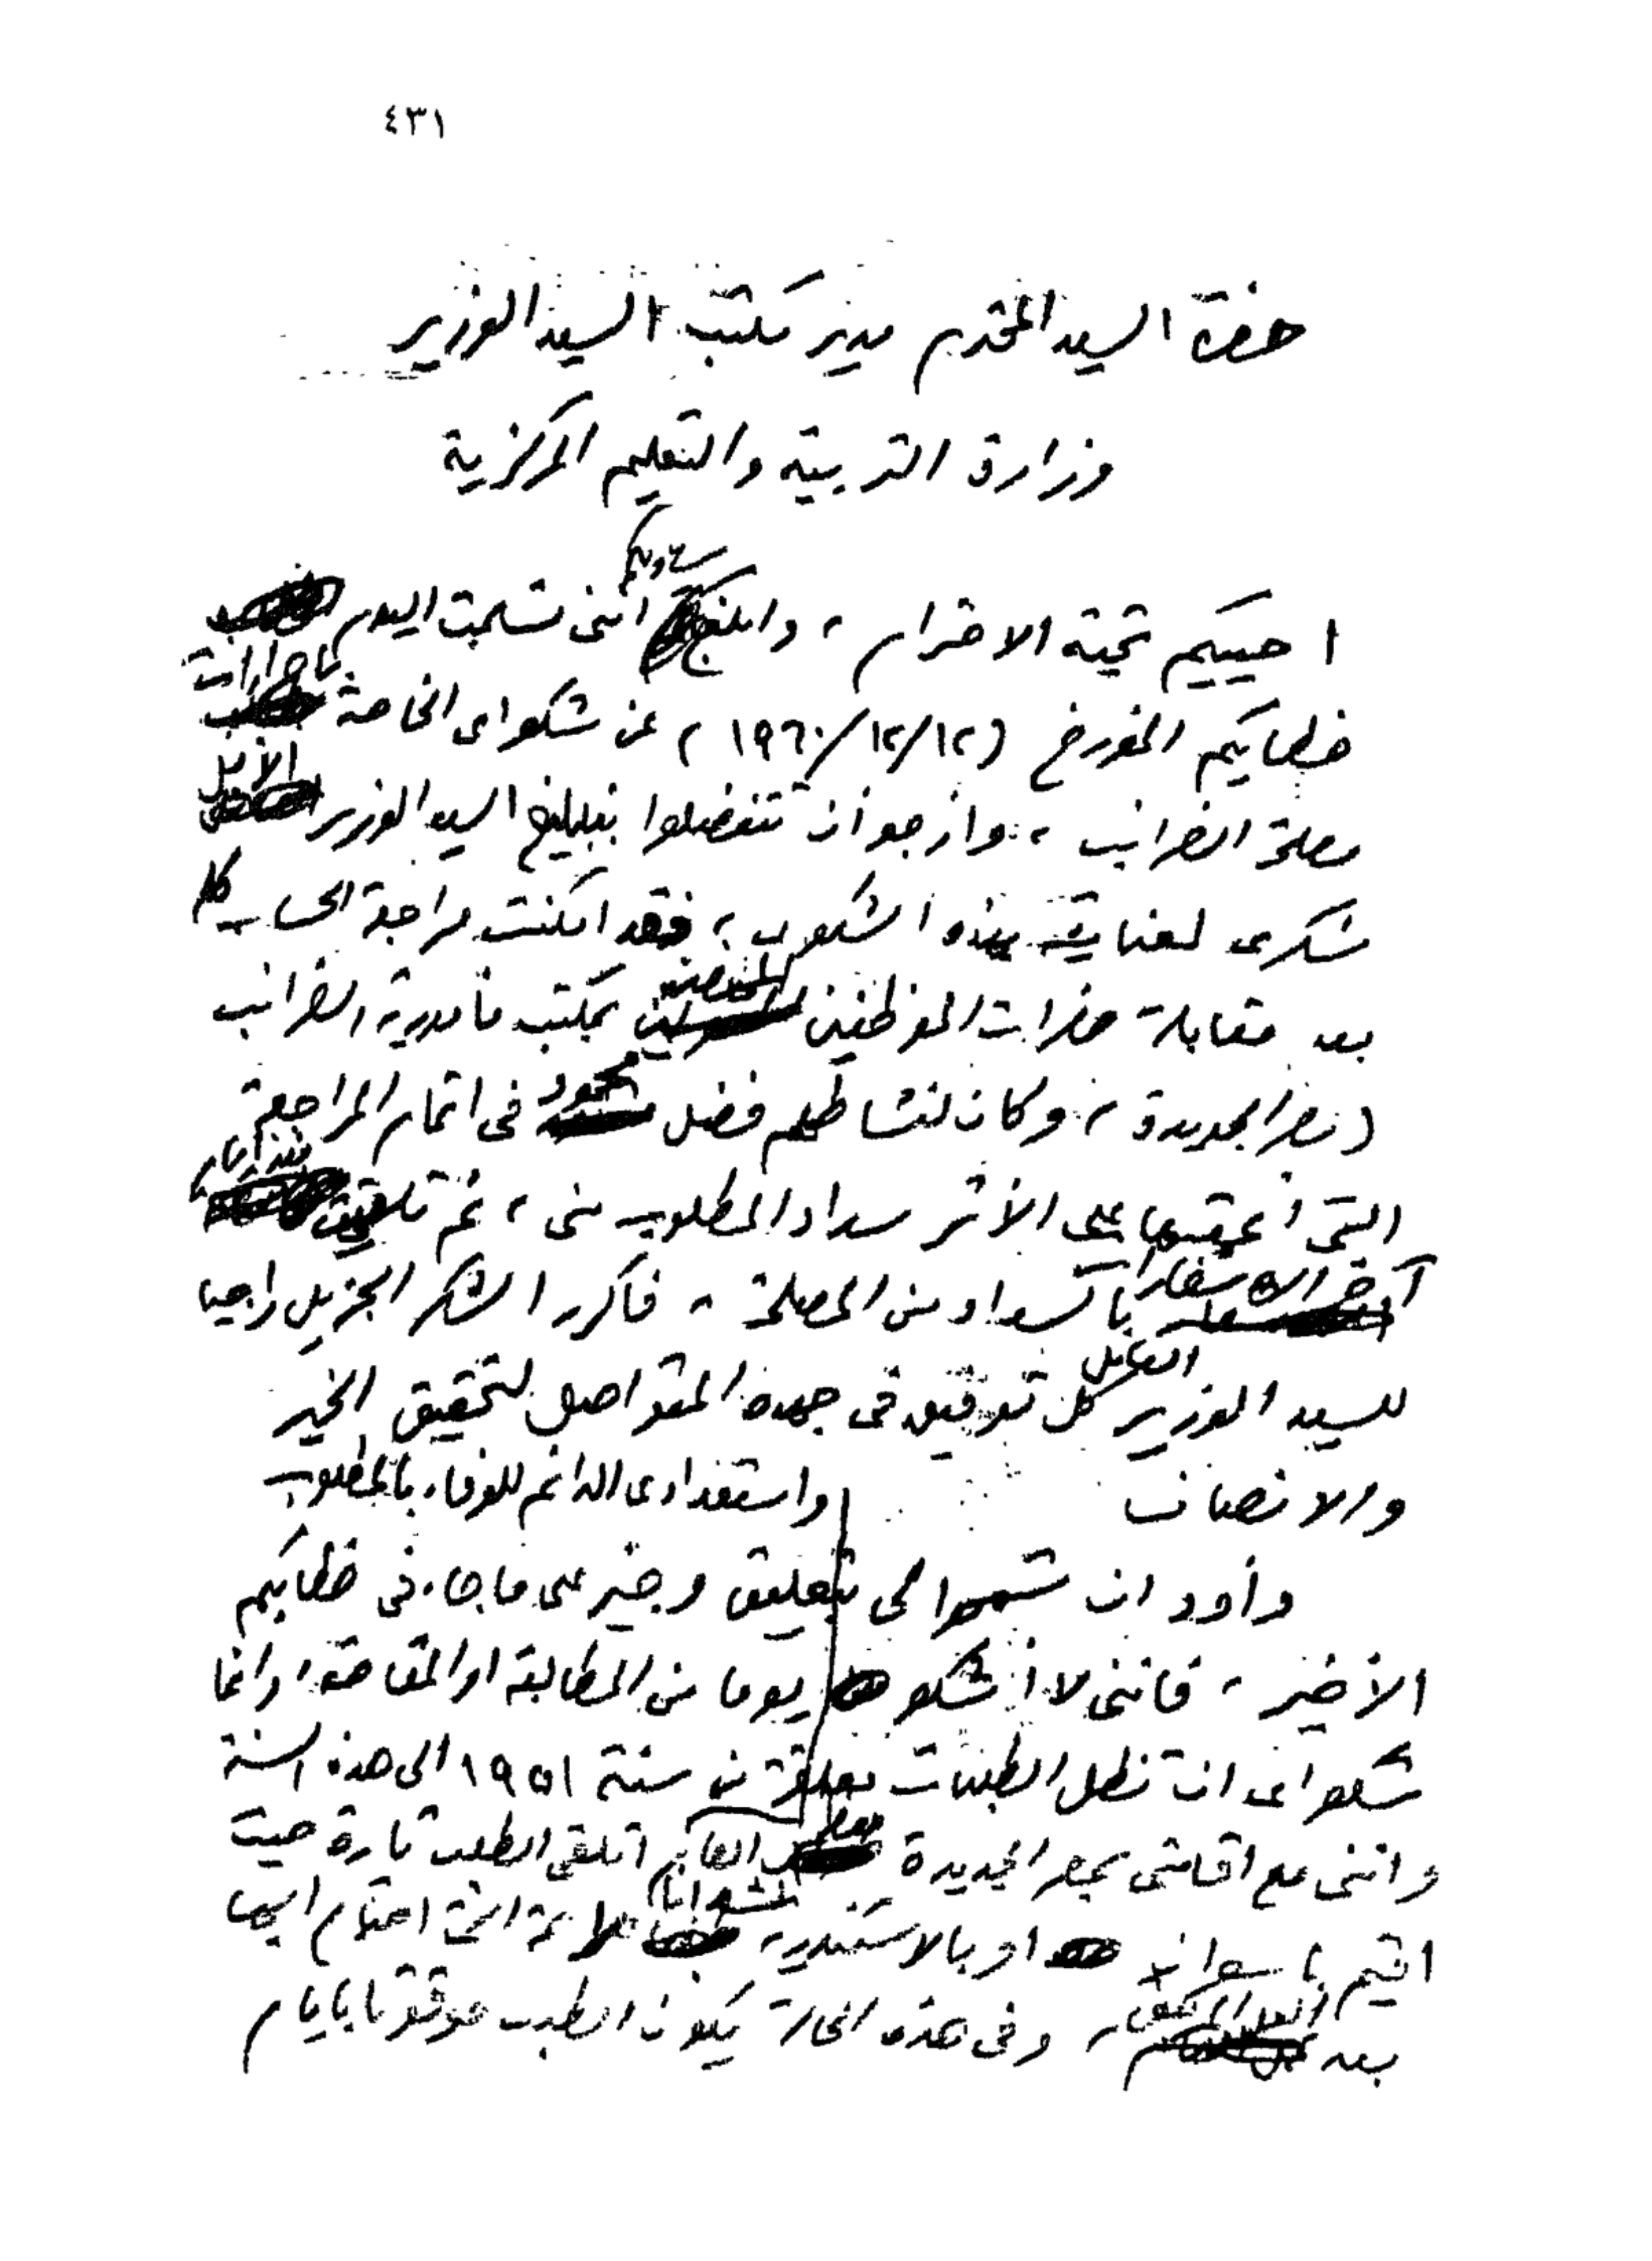 ٤٣١
حضرة السيد المحترم مدير مكتب السيد الوزير
وزارة التربية والتعليم المركزية
احييكم تحية الاحترام ، وابلغ سيادتكم اننى تسلمت اليوم
خطابكم المؤرخ (١٢/١٢/١٩٦٠) عن شكواى الخاصة باجراءات
مصلحة الضرائب ، وارجو أن تتفضلوا بتبليغ السيد الوزير
شكرى لعنايته بهذه الشكوى ، فقد امكنت مراجعة الحساب كله
بعد مقابلة حضرات الموظفين المختصين بمكتب مأمورية الضرائب
(بمصر الجديدة) ، وكان لنشاطهم فضل محمود فى اتمام المراجعة
التى أعقبتها على الأثر سداد المطلوب منى ، ثم تلقيت منذ أيام
آخر الاشعار بالسداد من المصلحة ، فأكرر الشكر الجزيل راجيا
للسيد الوزير العامل كل توفيق فى جهده المتواصل لتحقيق الخير
والانصاف
واستعدادى الدائم للوفاء بالمطلوب
وأود ان تسمحوا لى بتعليق وجيز على ما جاء فى خطابكم
الأخير ، فاننى لا أشكو يوما من المطالبة او المقاضاة ، وانما
شكواى ان تظل الطلبات معلقة من سنة ١٩٥١ الى هذه السنة
واننى مع اقامتى بمصر الجديدة معظم العام اتلقى الطلب تارة حيث
اقيم باسوان او بالاسكندرية
بعد ، وفى هذه الحالة يكون الطلب موقوتا بايام